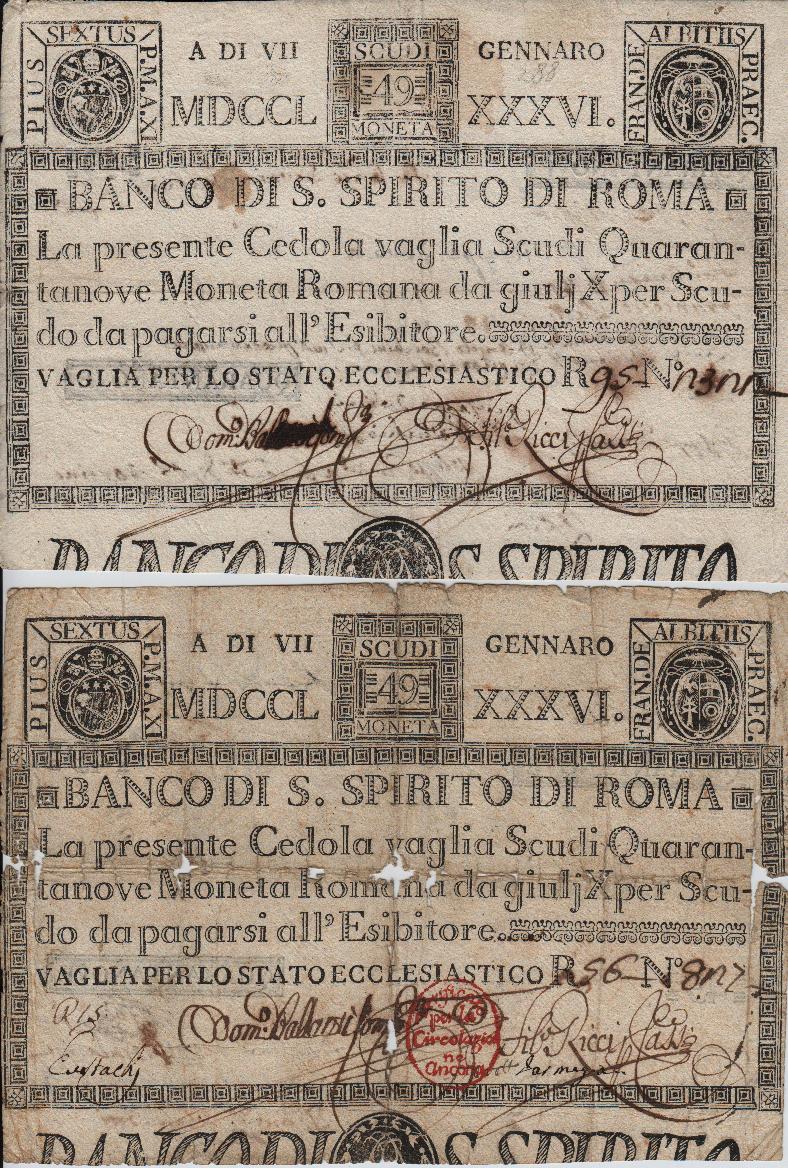 SEXTUS
PIUS
P.M.A.XI
A DI VII
SCUDI
49
MONETA
GENNARO
MDCCL
XXXVI.
ALBITIIS
FRAN.DE
PRAEC.
BANCO DI S. SPIRITO DI ROMA
La presente Cedola vaglia Scudi Quaran-
tanove Moneta Romana da giulj X per Scu-
do da pagarsi all' Esibitore.
VAGLIA PER LO STATO ECCLESIASTICO R. 95 N.º
Dom.º Ricci
BANCO DI S. SPIRITO
SEXTUS
PIUS
P.M.A.XI
A DI VII
SCUDI
49
MONETA
GENNARO
MDCCL
XXXVI.
ALBITIIS
FRAN.DE
PRAEC.
BANCO DI S. SPIRITO DI ROMA
La presente Cedola vaglia Scudi Quaran-
tanove Moneta Romana da giulj X per Scu-
do da pagarsi all' Esibitore.
VAGLIA PER LO STATO ECCLESIASTICO R. 56 N.º
Dom.º Ricci
per la
Circolazio
ne
Ancona
BANCO DI S. SPIRITO